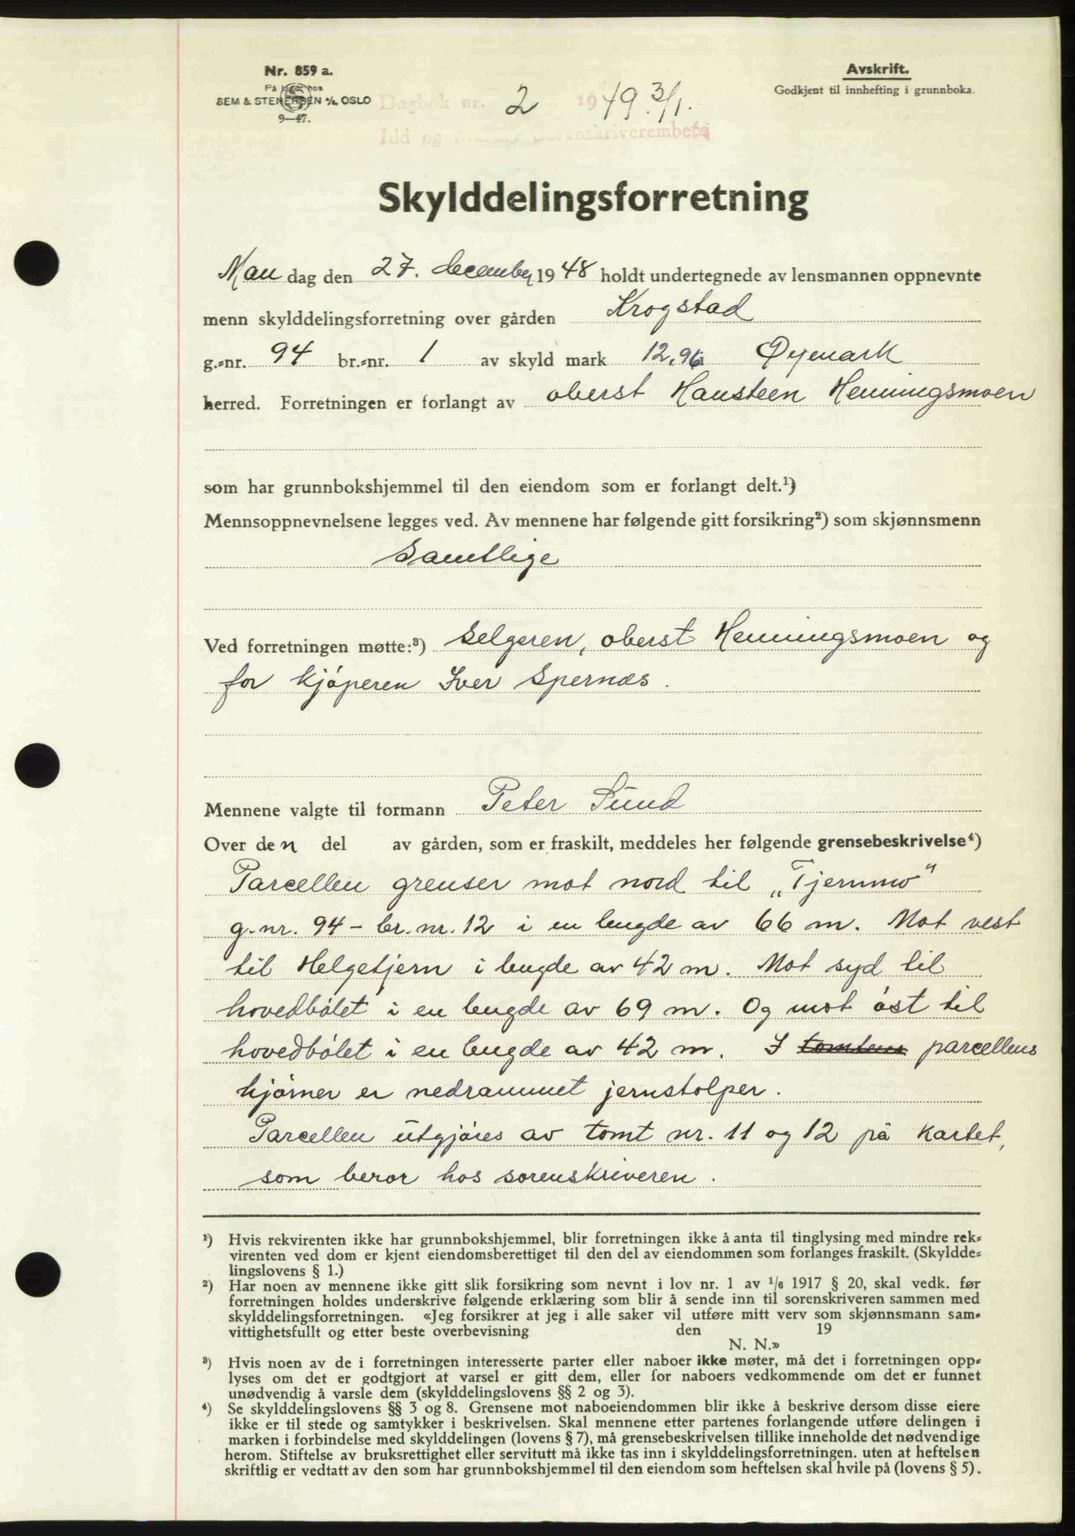 Nr. 859 a.
På lager hos
SEM & STENERSEN A/S OSLO
9—47.
Avskrift.
Godkjent til innhefting i grunnboka.
Dagbok nr. 2 1949 3/1.
Idd og Marker sorenskriverembete
Skylddelingsforretning
Mandag den 27. december 1948 holdt undertegnede av lensmannen oppnevnte
menn skylddelingsforretning over gården Krogstad
g.-nr. 94 br.-nr. 1 av skyld mark 12,96 Øymark
herred. Forretningen er forlangt av oberst Hansteen Henningsmoen
som har grunnbokshjemmel til den eiendom som er forlangt delt.¹)
Mennsoppnevnelsene legges ved. Av mennene har følgende gitt forsikring²) som skjønnsmenn
Samtlige
Ved forretningen møtte:³) Selgeren, oberst Henningsmoen og
for kjøperen Iver Spernæs.
Mennene valgte til formann Peter Sund
Over den del av gården, som er fraskilt, meddeles her følgende grensebeskrivelse⁴)
Parcellen grenser mot nord til „Tjernmo"
g.nr. 94 – br.nr. 12 i en lengde av 66 m. Mot vest
til Helgetjern i lengde av 42 m. Mot syd til
hovedbølet i en lengde av 69 m. Og mot øst til
hovedbølet i en lengde av 42 m. I tomtens parcellens
hjørner er nedrammet jernstolper.
Parcellen utgjøres av tomt nr. 11 og 12 på kartet,
som beror hos sorenskriveren.
¹) Hvis rekvirenten ikke har grunnbokshjemmel, blir forretningen ikke å anta til tinglysing med mindre rek-
virenten ved dom er kjent eiendomsberettiget til den del av eiendommen som forlanges fraskilt. (Skyldde-
lingslovens § 1.)
²) Har noen av mennene ikke gitt slik forsikring som nevnt i lov nr. 1 av 1/6 1917 § 20, skal vedk. før
forretningen holdes underskrive følgende erklæring som blir å sende inn til sorenskriveren sammen med
skylddelingsforretningen. «Jeg forsikrer at jeg i alle saker vil utføre mitt verv som skjønnsmann sam-
vittighetsfullt og etter beste overbevisning den 19
N. N.»
³) Hvis noen av de i forretningen interesserte parter eller naboer ikke møter, må det i forretningen opp-
lyses om det er godtgjort at varsel er gitt dem, eller for naboers vedkommende om det er funnet
unødvendig å varsle dem (skylddelingslovens §§ 2 og 3).
⁴) Se skylddelingslovens §§ 3 og 8. Grensene mot naboeiendommen blir ikke å beskrive dersom disse eiere
ikke er til stede og samtykker i beskrivelsen. Skal mennene etter partenes forlangende utføre delingen i
marken i forbindelse med skylddelingen (lovens § 7), må grensebeskrivelsen tillike inneholde det nødvendige
herom. Stiftelse av bruksrettighet eller servitutt må ikke tas inn i skylddelingsforretningen, uten at heftelsen
skriftlig er vedtatt av den som har grunnbokshjemmel til den eiendom som heftelsen skal hvile på (lovens § 5).